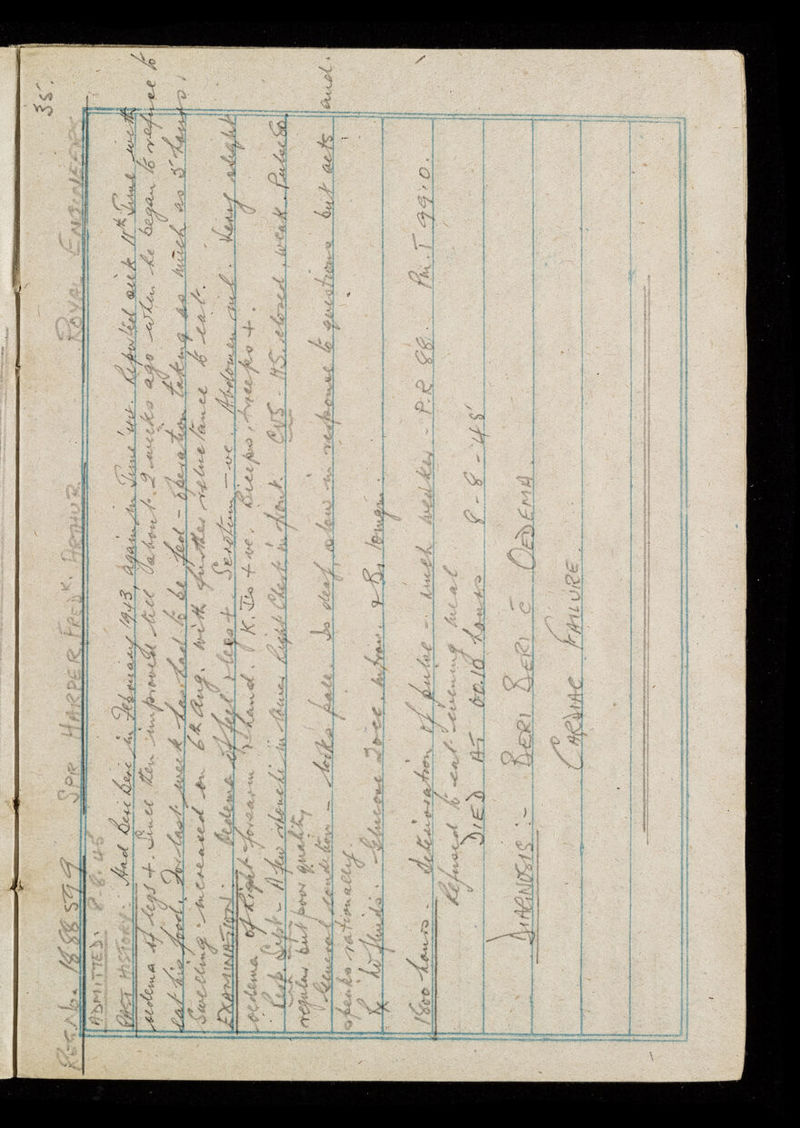 35.
REG. No. 1888599 SPR HARPER FREDK. ARTHUR ROYAL ENGINEERS
ADMITTED: 8.8.45
PAST HISTORY: Had Beri Beri in February 1943 again in June '45. Reported sick 11th June with
oedema of legs +. Since then improved till about 2 weeks ago when he began to refuse to
eat his food. For last week has had to be fed – operation taking as much as 5 hours.
Swelling increased on 6th Aug. with further reluctance to eat.
EXAMINATION. Oedema of feet & legs +. Scrotum –ve. Abdomen nil. Very slight
oedema of Right forearm & hand. K.Js +ve. Biceps, triceps +.
Resp. Syst – A few rhonchi in Right Chest in front. CVS. HS. closed, weak. Pulse 80
regular but poor quality.
General condition – looks pale. Is deaf, slow in response to questions but acts and
speaks rationally.
Rx Lo fluids. Glucose 20cc & B1 10mgm.
1800 hours. Deterioration of pulse – much weaker – P.R 88. Pm.T 99.0.
Refused to eat evening meal
DIED AT 00.10 hours 8-8-45
DIAGNOSIS:- BERI BERI c̄ OEDEMA.
CARDIAC FAILURE.